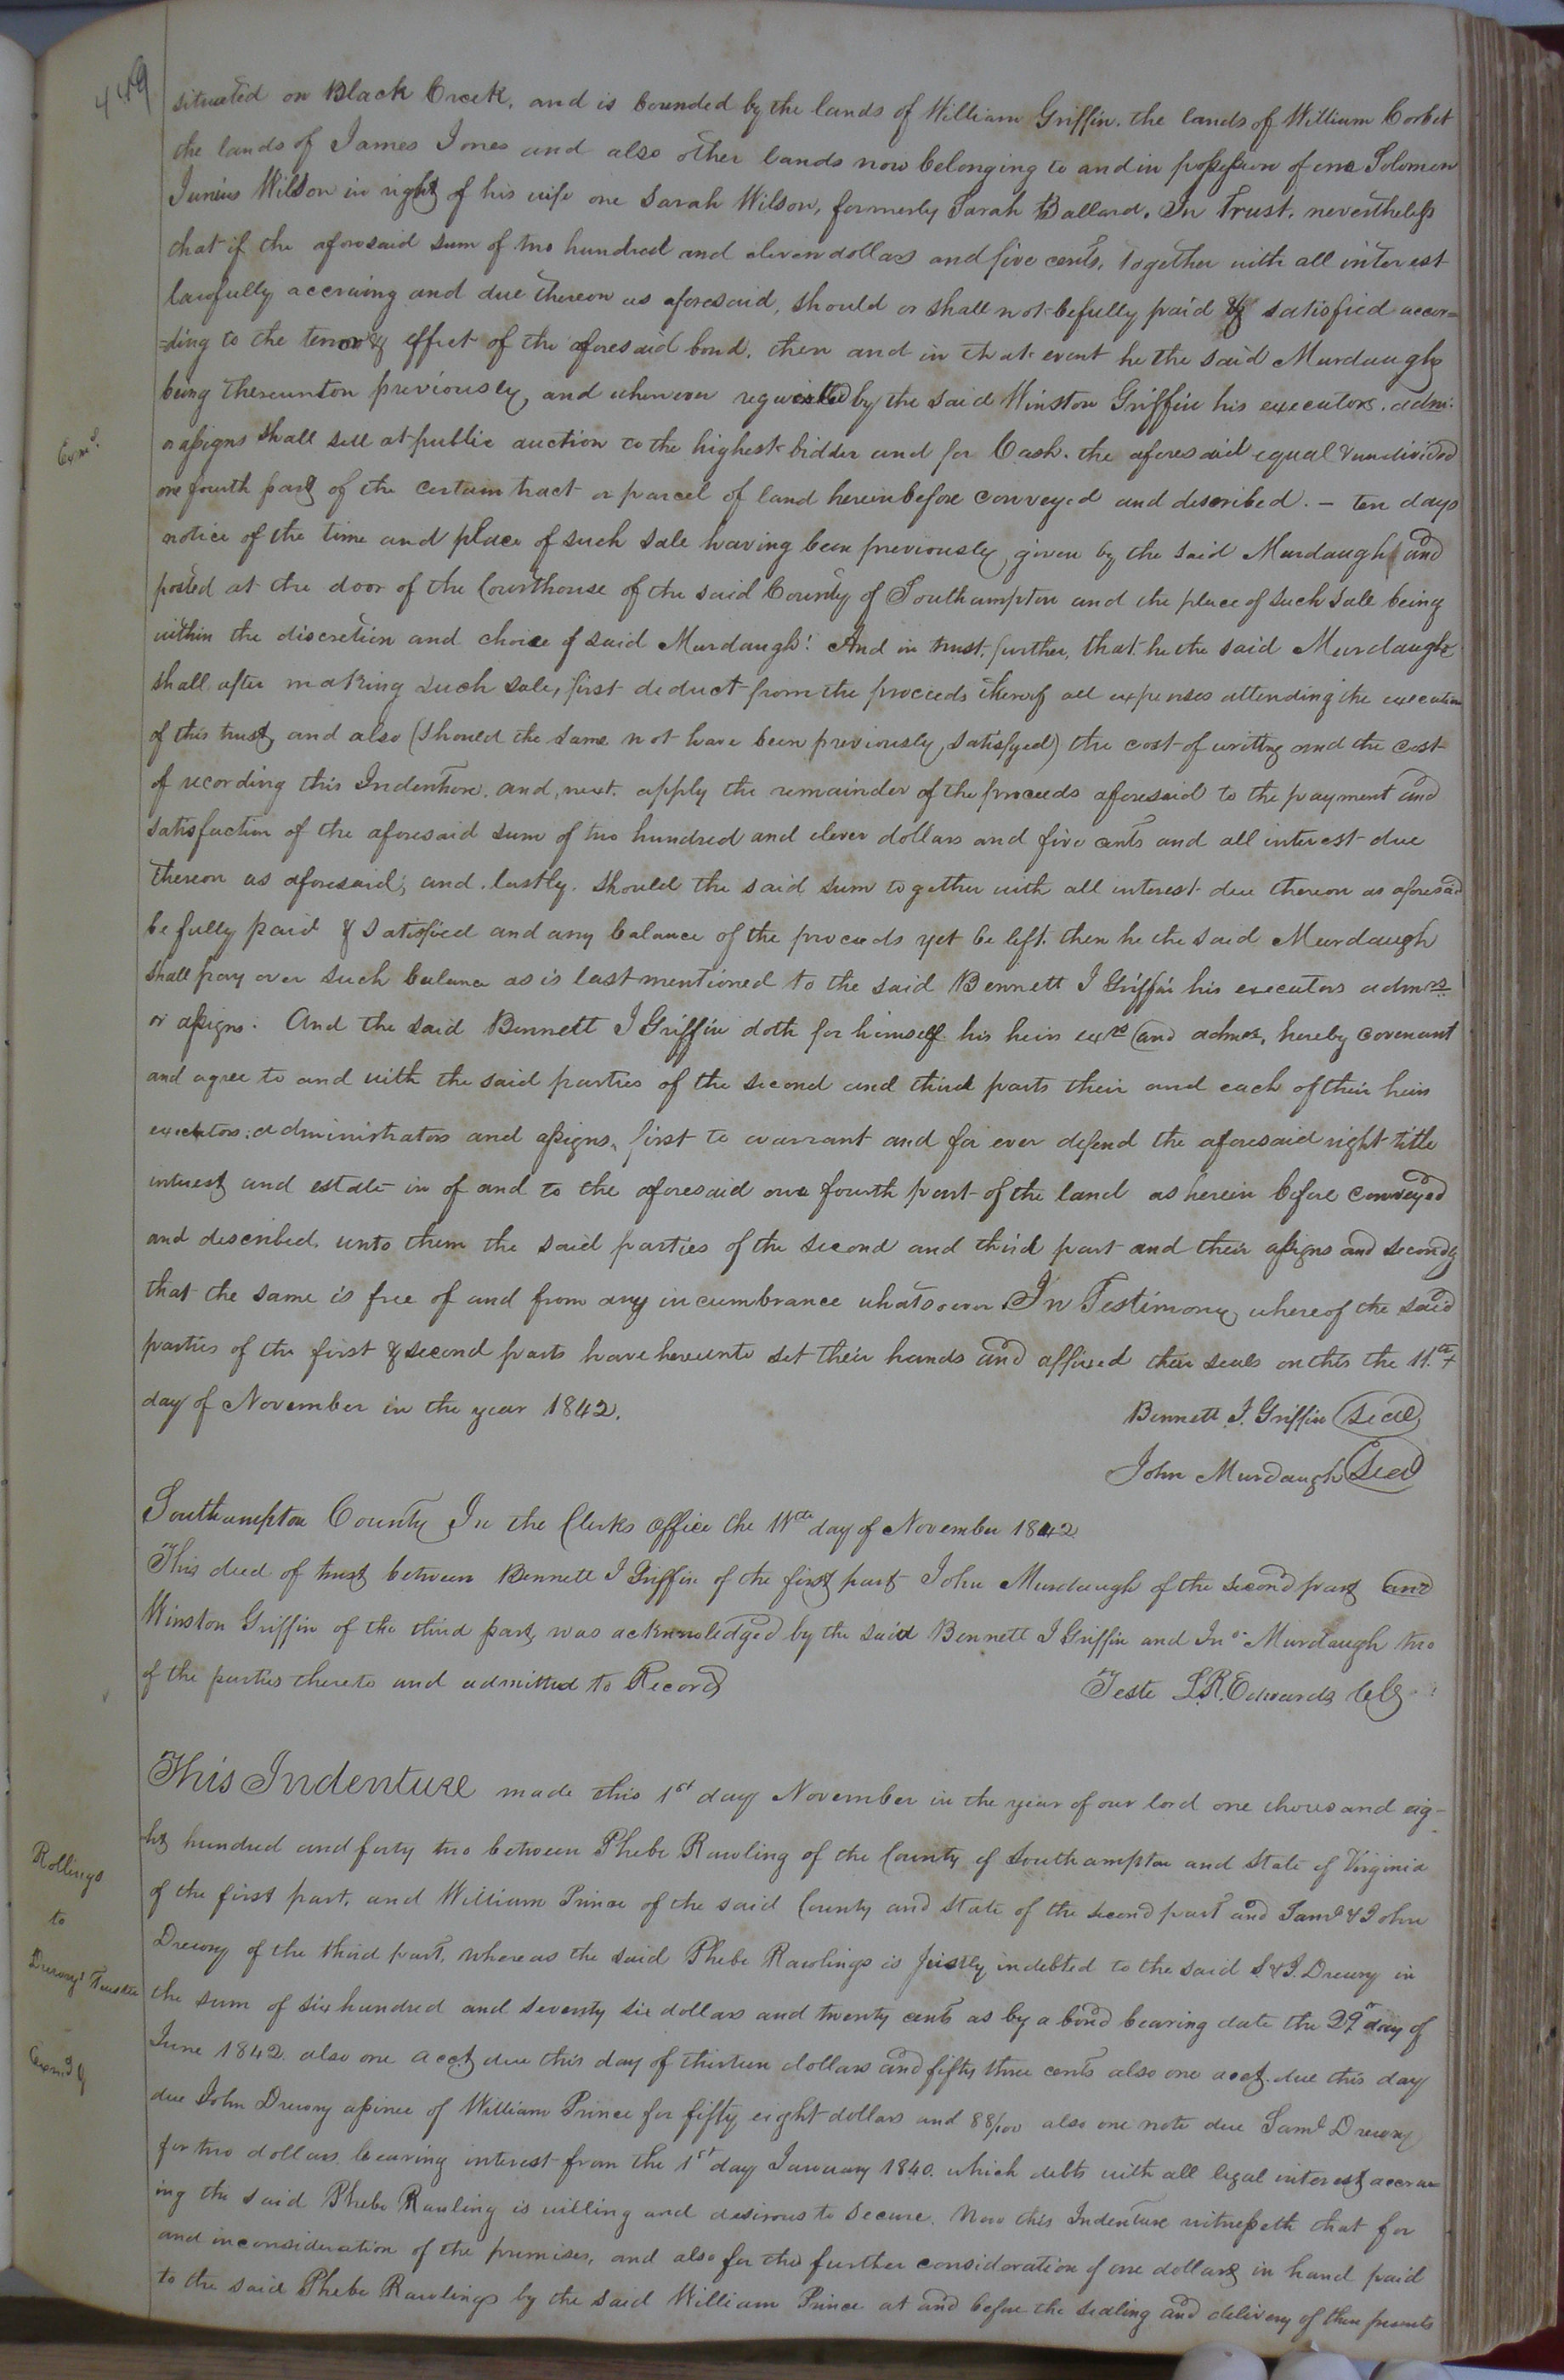 449
situated on Black Creek, and is bounded by the lands of William Griffin. the lands of William Corbet
the lands of James Jones and also other lands now belonging to and in possession of one Solomon
Junius Wilson in right of his wife one Sarah Wilson, formerly Sarah Ballard. In Trust, nevertheless
that if the aforesaid sum of two hundred and eleven dollars and five cents, together with all interest
lawfully accruing and due thereon as aforesaid, should or shall not be fully paid & satisfied accor=
=ding to the tenor & effect of the aforesaid bond, then and in that event he the said Murdaugh
being thereunton previously, and whenever requested by the said Winston Griffin his executors. adm:
Exmd.
or assigns shall sell at public auction to the highest bidder and for Cash. the aforesaid equal & undivided
one fourth part of the certain tract or parcel of land herein before conveyed and described. – ten days
notice of the time and place of such sale having been previously given by the said Murdaugh and
posted at the door of the Courthouse of the said County of Southampton and the place of such sale being
within the discretion and choice of said Murdaugh! And in trust, further, that he the said Murdaugh
shall after making such sale, first deduct from the proceeds thereof all expenses attending the execution
of this trust, and also (should the same not have been previously satisfyed) the cost of writing and the cost
of recording this Indenture. and, next. apply the remainder of the proceeds aforesaid to the payment and
satisfaction of the aforesaid sum of two hundred and eleven dollars and five cents and all interest due
thereon as aforesaid; and. lastly. should the said sum together with all interest due thereon as aforesaid
be fully paid & satisfied and any balance of the proceeds yet be left. then he the said Murdaugh
shall pay over such balance as is last mentioned to the said Bennett J Griffin his executors admrs
or assigns. And the said Bennett J Griffin doth for himself his heirs exrs and admrs, hereby covenant
and agree to and with the said parties of the second and third parts their and each of their heirs
executors. administrators and assigns, first to warrant and for ever defend the aforesaid right title
interest and estate in of and to the aforesaid one fourth part of the land as herein before conveyed
and described, unto them the said parties of the second and third part and their assigns and secondly
that the same is free of and from any incumbrance whatsoever. In Testimony whereof the said
parties of the first & second parts have hereunto set their hands and affixed their seals on this the 11th
day of November in the year 1842.
Bennett J. Griffin Seal
John Murdaugh Seal
Southampton County In the Clerks Office the 11th day of November 1842
This deed of trust between Bennett J Griffin of the first part John Murdaugh of the second part and
Winston Griffin of the third part, was acknowledged by the said Bennett J Griffin and Jno. Murdaugh two
of the parties thereto and admitted to Record
Teste L.R. Edwards
This Indenture made this 1st day November in the year of our lord one thousand eig-
-ht hundred and forty two between Phebe Rawling of the County of Southampton and State of Virginia
Rollings
to
Drewrys Trustee
Exmd
of the first part, and William Prince of the said County and State of the second part and Saml & John
Drewry of the third part, whereas the said Phebe Rawlings is justly indebted to the said S. & J. Drewry in
the sum of six hundred and seventy six dollars and twenty cents as by a bond bearing date the 29th day of
June 1842. also one acct due this day of thirteen dollars and fifty three cents also one acct. due this day
due John Drewry assinee of William Prince for fifty eight dollars and 88/100 also one note due Saml Drewry
for two dollars bearing interest from the 1st day January 1840. which debts with all legal interest accru=
ing the said Phebe Rawling is willing and desirous to secure. Now this Indenture witnesseth that for
and in consideration of the premises, and also for the further consideration of one dollars in hand paid
to the said Phebe Rawlings by the said William Prince at and before the sealing and delivery of these presents